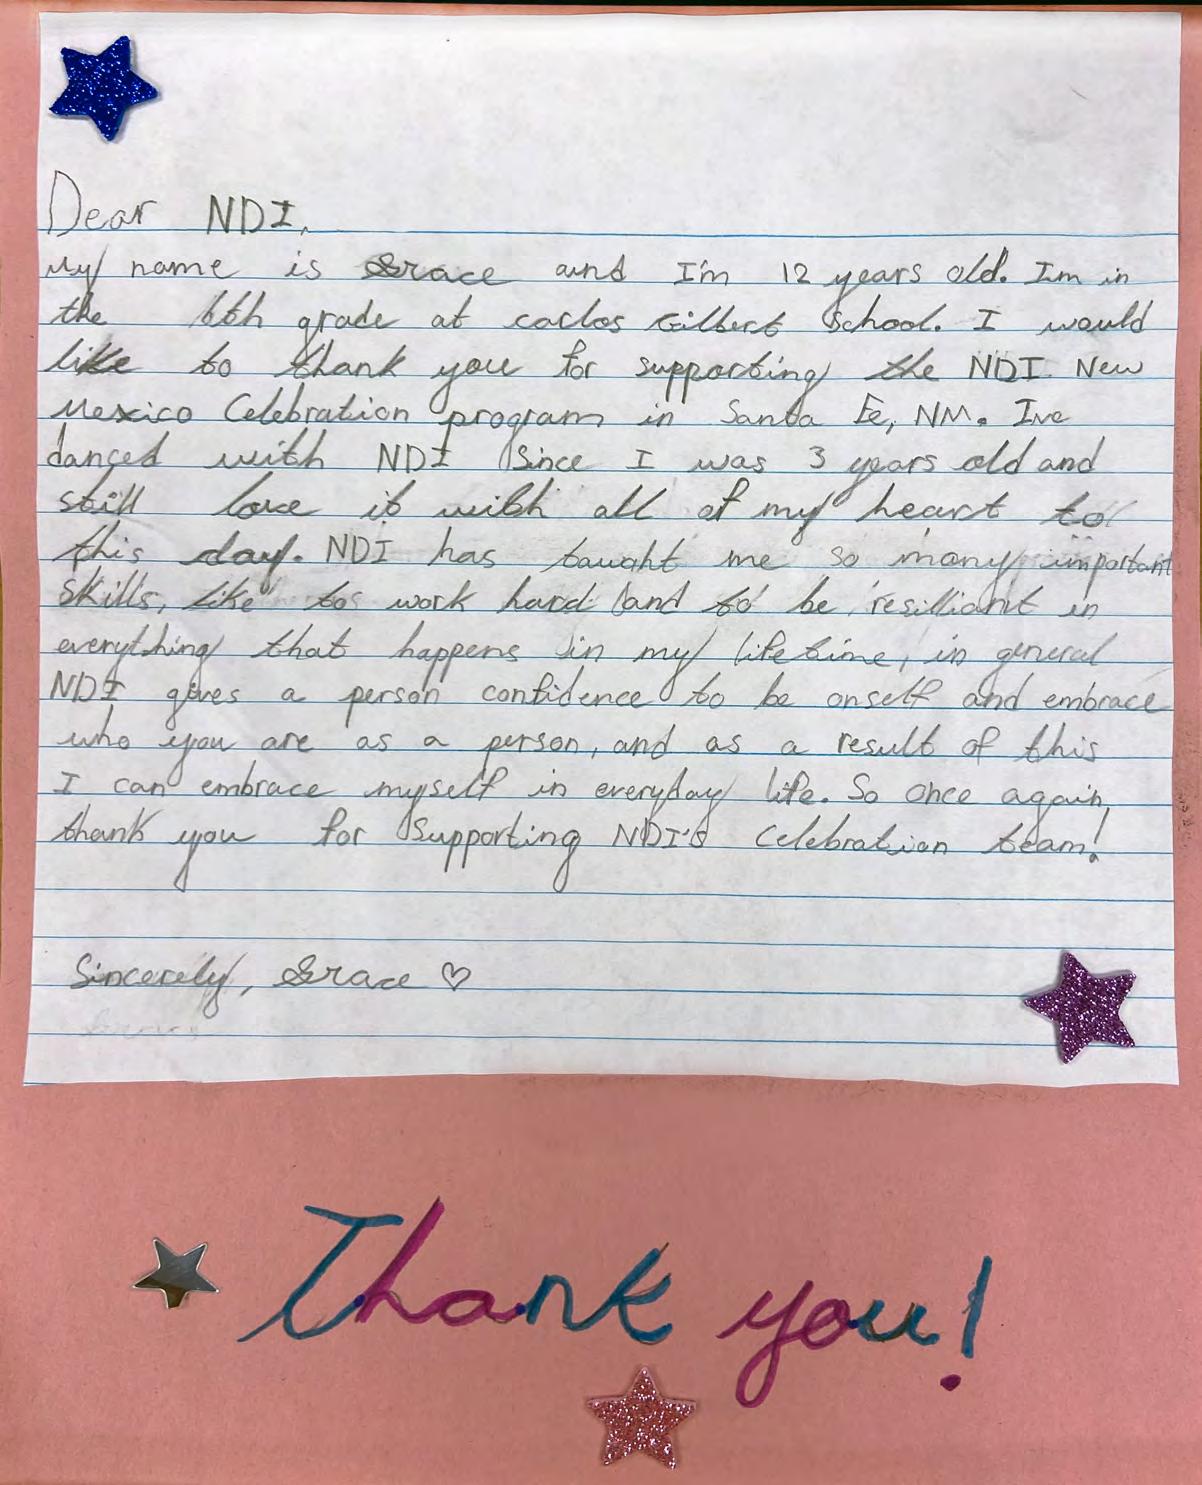 Dear NDI,
My name is Grace and I'm 12 years old. Im in
the 6th grade at carlos Gilbert School. I would
like to thank you for supporting the NDI New
Mexico Celebration program in Santa Fe, NM. Ive
danced with NDI Since I was 3 years old and
still love it with all of my heart to
this day. NDI has taught me so many important
skills, like to work hard and to be resilliant in
everything that happens in my lifetime, in general
NDI gives a person confidence to be onself and embrace
who you are as a person, and as a result of this
I can embrace myself in everyday life. So once again,
thank you for Supporting NDI's Celebration team!
Sincerely, Grace ♡
Thank you!